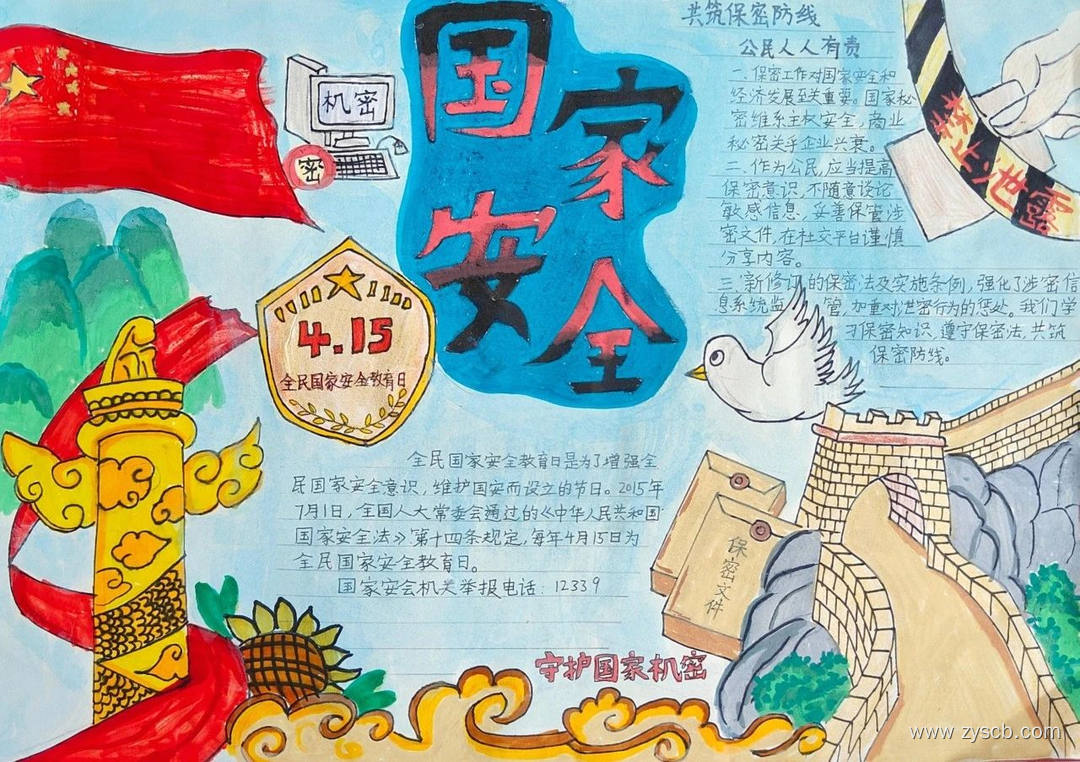 国家安全
共筑保密防线
公民人人有责
一、保密工作对国家安全和
经济发展至关重要。国家秘
密维系主权安全，商业
秘密关乎企业兴衰。
二、作为公民，应当提高
保密意识，不随意谈论
敏感信息，妥善保管涉
密文件，在社交平台谨慎
分享内容。
三、新修订的保密法及实施条例，强化了涉密信
息系统监管，加重对泄密行为的惩处。我们学
习保密知识，遵守保密法，共筑
保密防线。
禁止泄露
机密
密
4.15
全民国家安全教育日
全民国家安全教育日是为了增强全
民国家安全意识，维护国安而设立的节日。2015年
7月1日，全国人大常委会通过的《中华人民共和国
国家安全法》第十四条规定，每年4月15日为
全民国家安全教育日。
国家安会机关举报电话：12339
保密文件
守护国家机密
www.zyscb.com